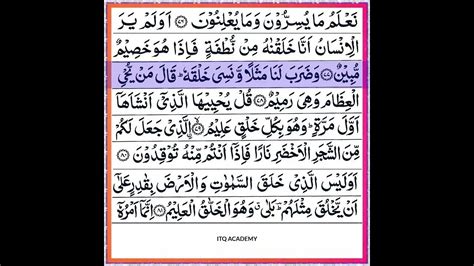 نَعۡلَمُ مَا یُسِرُّوۡنَ وَمَا یُعۡلِنُوۡنَ ﴿۷۶﴾ اَوَلَمۡ یَرَ
الۡاِنۡسَانُ اَنَّا خَلَقۡنٰهُ مِنۡ نُّطۡفَةٍ فَاِذَا هُوَ خَصِیۡمٌ
مُّبِیۡنٌ ﴿۷۷﴾ وَضَرَبَ لَنَا مَثَلًا وَّنَسِیَ خَلۡقَهٗ ؕ قَالَ مَنۡ یُّحۡیِ
الۡعِظَامَ وَهِیَ رَمِیۡمٌ ﴿۷۸﴾ قُلۡ یُحۡیِیۡهَا الَّذِیۡۤ اَنۡشَاَهَاۤ
اَوَّلَ مَرَّةٍ ؕ وَهُوَ بِکُلِّ خَلۡقٍ عَلِیۡمُ ۣ ﴿۷۹﴾ الَّذِیۡ جَعَلَ لَکُمۡ
مِّنَ الشَّجَرِ الۡاَخۡضَرِ نَارًا فَاِذَاۤ اَنۡتُمۡ مِّنۡهُ تُوۡقِدُوۡنَ ﴿۸۰﴾
اَوَلَیۡسَ الَّذِیۡ خَلَقَ السَّمٰوٰتِ وَالۡاَرۡضَ بِقٰدِرٍ عَلٰۤی
اَنۡ یَّخۡلُقَ مِثۡلَهُمۡ ؕ بَلٰی ۗ وَهُوَ الۡخَلّٰقُ الۡعَلِیۡمُ ﴿۸۱﴾ اِنَّمَاۤ اَمۡرُهٗۤ
ITQ ACADEMY